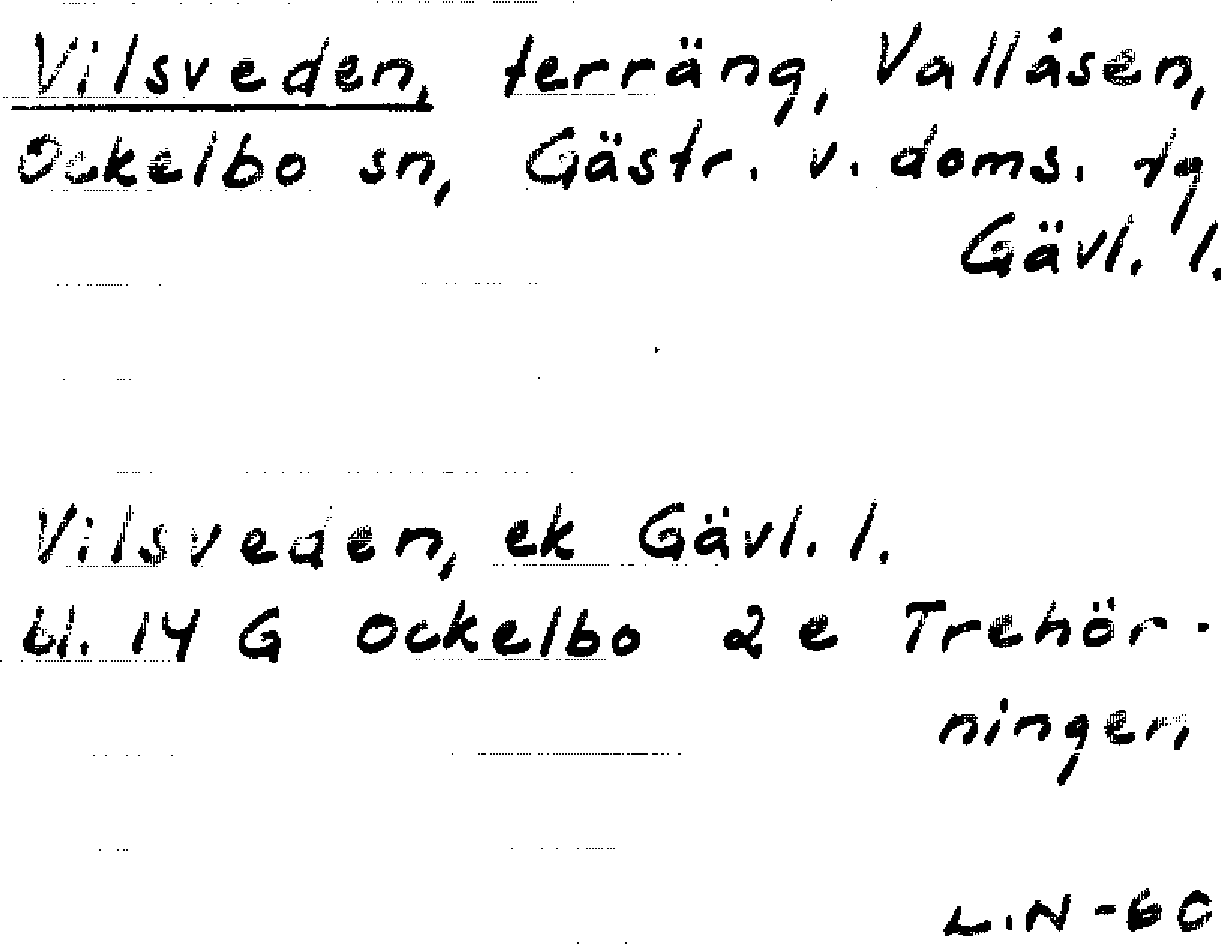 Vilsveden, terräng, Vallåsen,
Ockelbo sn, Gästr. v. doms. tg
Gävl. l.
Vilsveden, ek Gävl. l.
bl. 14 G Ockelbo 2 e Trehör-
ningen
L.N -60